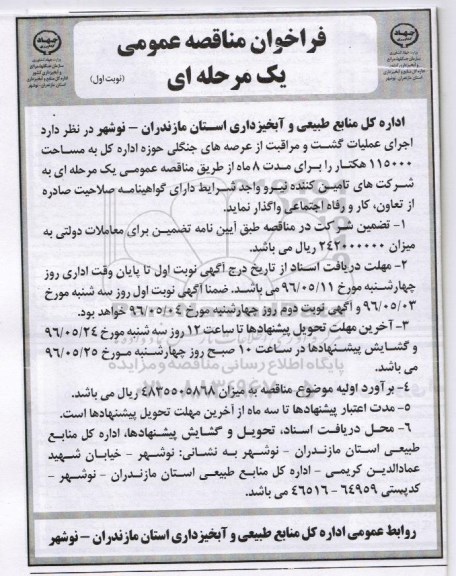 فراخوان مناقصه عمومی
یک مرحله ای
(نوبت اول)
اداره کل منابع طبیعی و آبخیزداری استان مازندران – نوشهر در نظر دارد
اجرای عملیات گشت و مراقبت از عرصه های جنگلی حوزه اداره کل به مساحت
۱۱۵۰۰۰ هکتار را برای مدت ۸ ماه از طریق مناقصه عمومی یک مرحله ای به
شرکت های تامین کننده نیرو واجد شرایط دارای گواهینامه صلاحیت صادره
از تعاون، کار و رفاه اجتماعی واگذار نماید.
۱- تضمین شرکت در مناقصه طبق آیین نامه تضمین برای معاملات دولتی به
میزان ۲۴۲۰۰۰۰۰۰ ریال می باشد.
۲- مهلت دریافت اسناد از تاریخ درج آگهی نوبت اول تا پایان وقت اداری روز
چهارشنبه مورخ ۹۶/۰۵/۱۱ می باشد. ضمنا آگهی نوبت اول روز سه شنبه مورخ
۹۶/۰۵/۰۳ و آگهی نوبت دوم روز چهارشنبه مورخ ۹۶/۰۵/۰۴ خواهد بود.
۳- آخرین مهلت تحویل پیشنهادها تا ساعت ۱۲ روز سه شنبه مورخ ۹۶/۰۵/۲۴
و گشایش پیشنهادها در ساعت ۱۰ صبح روز چهارشنبه مورخ ۹۶/۰۵/۲۵
می باشد.
۴- برآورد اولیه موضوع مناقصه به میزان ۴۸۳۵۵۰۵۸۶۸ ریال می باشد.
۵- مدت اعتبار پیشنهادها تا سه ماه از آخرین مهلت تحویل پیشنهادها است.
۶- محل دریافت اسناد، تحویل و گشایش پیشنهادها، اداره کل منابع
طبیعی استان مازندران – نوشهر به نشانی: نوشهر – خیابان شهید
عمادالدین کریمی – اداره کل منابع طبیعی استان مازندران – نوشهر –
کدپستی ۶۴۹۵۹ – ۴۶۵۱۶ می باشد.
روابط عمومی اداره کل منابع طبیعی و آبخیزداری استان مازندران – نوشهر